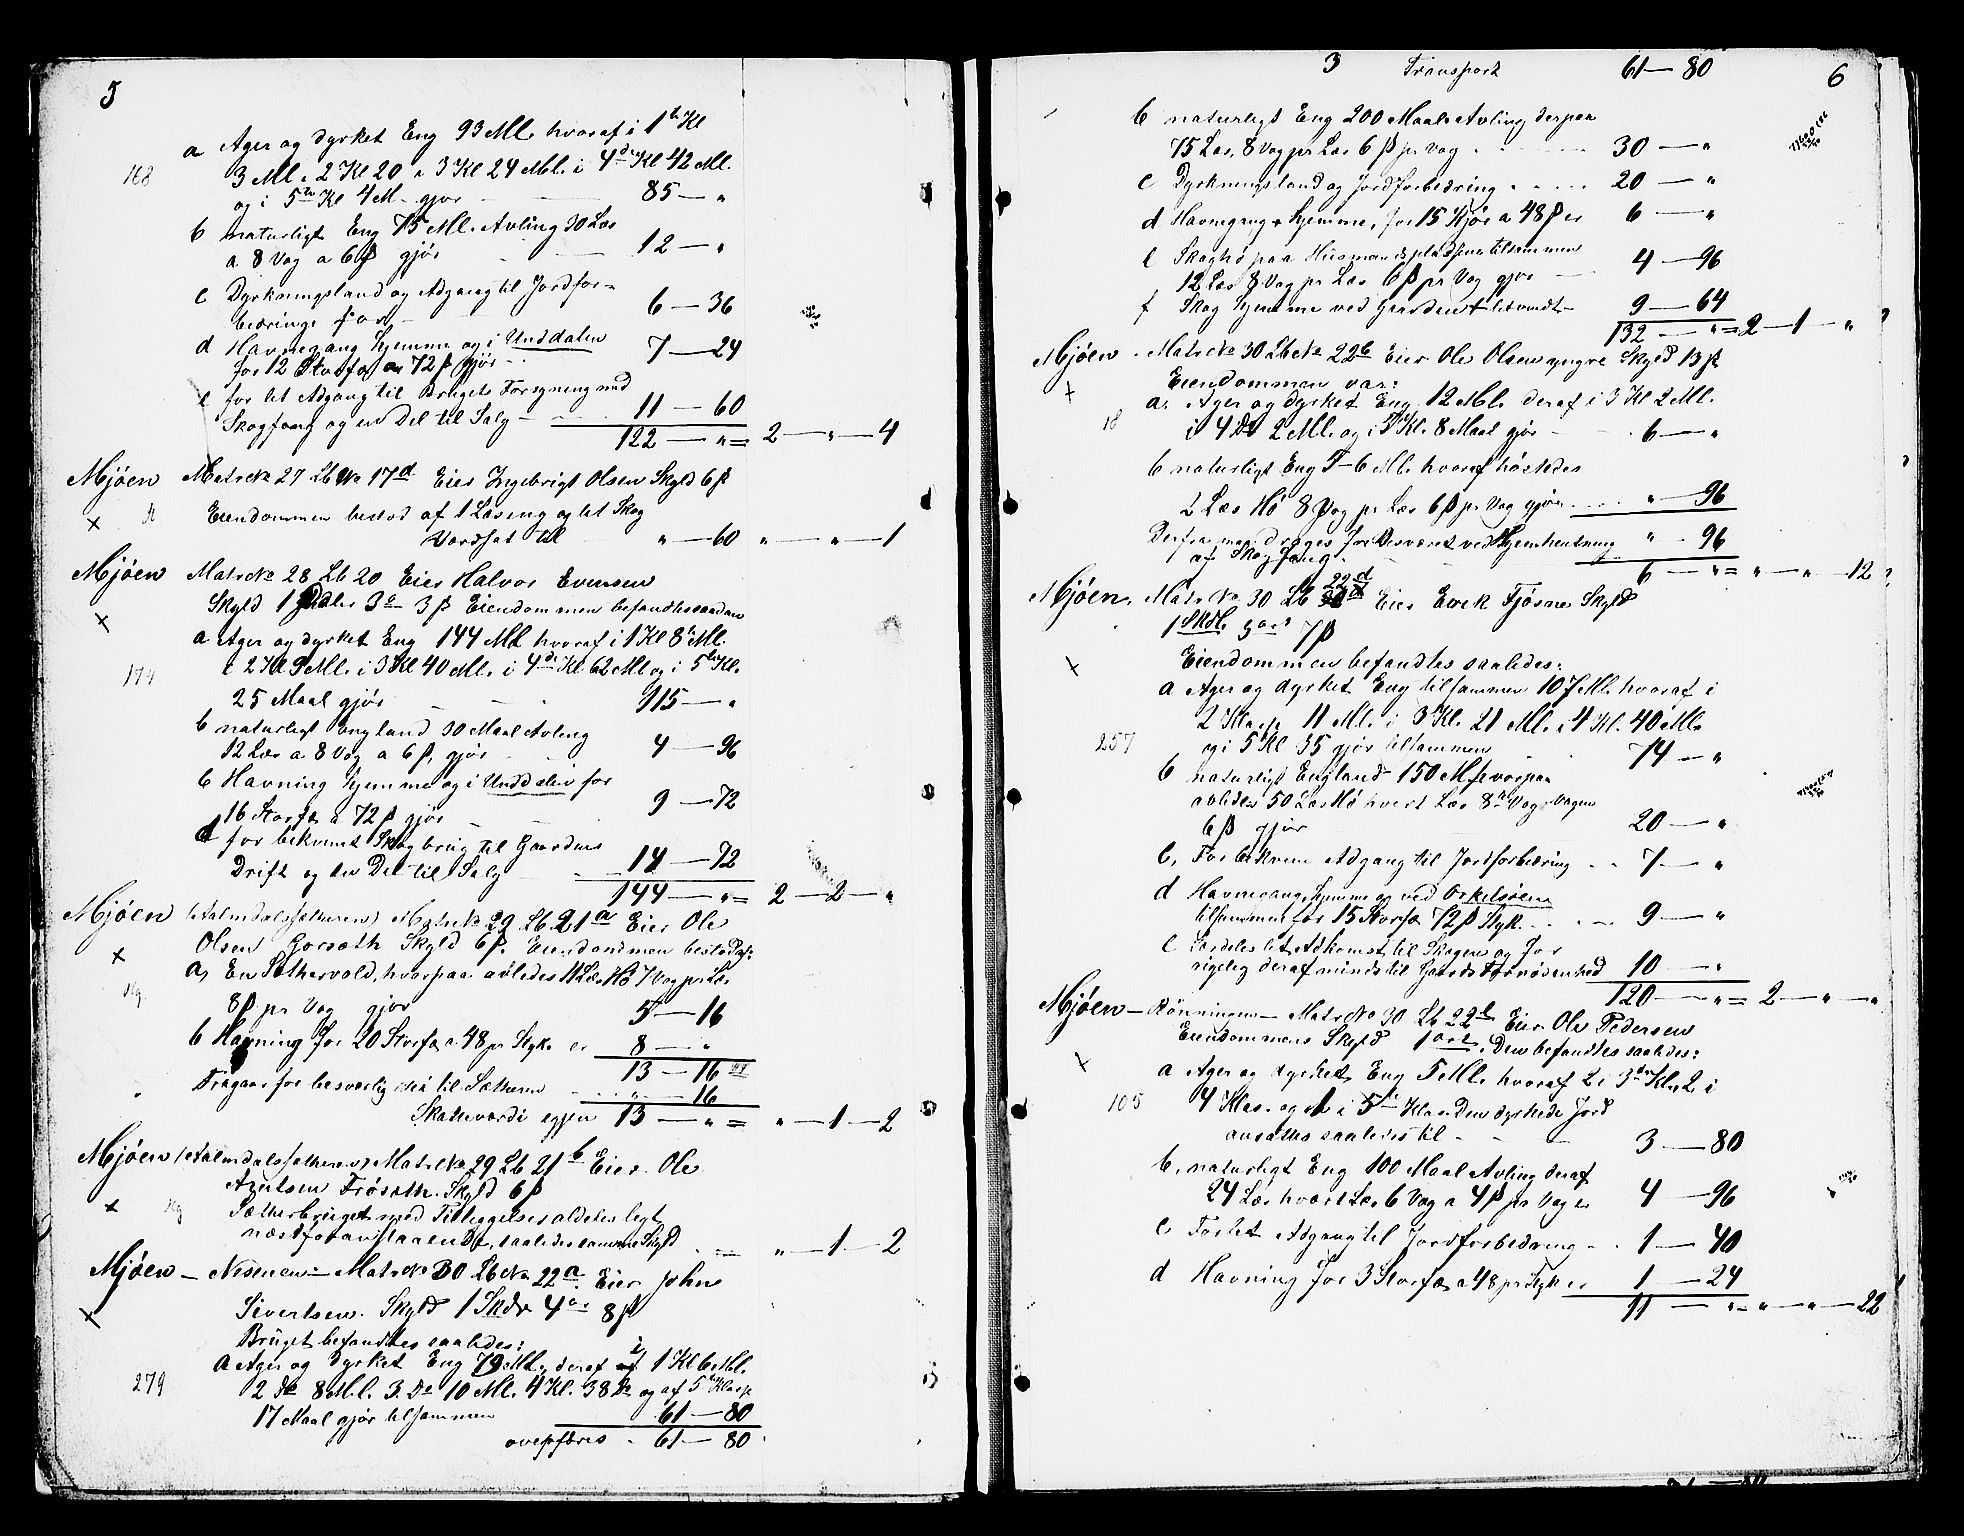 5
a Ager og dyrket Eng 93 Ml. hvoraf i 1te Kl
168 3 Ml. 2 Kl 20 " 3 Kl 24 Ml. i 4de Kl 42 Ml.
og i 5te Kl 4 M. gjør 85 — "
b naturligt Eng 75 Ml. Avling 30 Læs
a 8 Vog a 6 ß gjør 12 — "
c Dyrkningsland og Adgang til Jordfor-
bedringe for 6 — 36
d Havnegang hjemme og i Unddalen
for 12 Storfæ a 72 ß gjør 7 — 24
e for let Adgang til Brugets Forsyning med
Skogfang og en Del til Salg 11 — 60
122 — " = 2 — " — 4
Mjøen Matr No 27 Lb No 17d Eier Ingebrigt Olsen Skyld 6 ß
Eiendommen bestod af 1 Løseng og let Skog
Værdsat til " — 60 " — " — 1
Mjøen Matr No 28 Lb 20 Eier Halvor Evensen
Skyld 1 Daler 3 o 3 ß Eiendommen befandtes saadan
a Ager og dyrket Eng 144 Ml hvoraf i 1 Kl 8 Ml.
174 i 2 Kl 9 Ml. i 3 Kl 40 Ml. i 4de Kl 62 Ml og i 5te Kl.
25 Maal gjør 115 — "
b naturligt England 30 Maal Avling
12 Læs a 8 Vog a 6 ß, gjør 4 — 96
c Havning hjemme og i Unddalen for
16 Storfæ a 72 ß gjør 9 — 72
d for bekvemt Skogbrug til Gaardens
Drift og en Del til Salg 14 — 72
144 — " = 2 — 2 — "
Mjøen (Aalmdalssætheren) Matr No 29 Lb 21a Eier Ole
Olsen Gorsæth Skyld 6 ß. Eiendommen bestod af:
a, En Sæthervold, hvorpaa avledes 11 Læs Hø 7 Vog pr Læs
8 ß pr Vog gjør 5 — 16
b Havning for 20 Storfæ a 48 pr Styk. er 8 — "
13 — 16
Fragaar for besværlig Vei til Sætheren " — 16
Skatteværdi igjen 13 — " = " — 1 — 2
Mjøen (Aalmdalssætheren) Matr No 29 Lb 21b Eier Ole
Arntsen Frøsæth. Skyld 6 ß
Sætherbruget med Tilleggelser aldeles ligt
næstforanstaaende, saaledes samme Skyld = " — 1 — 2
Mjøen — Nedenen — Matr No 30 Lb No 22a Eier John
Sivertsen. Skyld 1 Skdr 4 o 8 ß
Bruget befandtes saaledes:
a Ager og dyrket Eng 79 Ml, deraf i 1 Kl 6 Ml.
279 2 Do 8 Ml. 3 Do 10 Ml. 4 Kl. 38 Do og af 5te Klasse
17 Maal gjør tilsammen 61 — 80
overføres 61 — 80
3 Transport 61 — 80 6
b naturligt Eng 200 Maal Avling derpaa
75 Læs, 8 Vog pr Læs 6 ß pr Vog 30 — "
c Dyrkningsland og Jordforbedring 20 — "
d Havnegang hjemme, for 15 Kjør a 48 ß er 6 — "
e Skoghø paa Husmandspladsene tilsammen
12 Læs 8 Vog pr Læs 6 ß pr Vog gjør 4 — 96
f Skog hjemme ved Gaarden 9 — 64
132 — " = 2 — 1 — "
Mjøen Matr No 30 Lb No 22b Eier Ole Olsen yngre Skyld 13 ß
Eiendommen var:
a. Ager og dyrket Eng 12 Ml. deraf i 3 Kl 2 Ml.
18 i 4 Do 2 Ml. og i 5 Kl. 8 Maal gjør 6 — "
b naturligt Eng 5-6 Ml. hvoraf høstedes
2 Læs Hø 8 Vog pr Læs 6 ß pr Vog gjør " — 96
Derfra maa drages for Besværet ved Hjemhentning " — 96
af Skogfang
6 — " = " — " — 12
Mjøen. Matr No 30 Lb 22d Eier Erik Fjøsne Skyld
1 Skdl. 3 ort 7 ß
Eiendommen befandtes saaledes:
a Ager og dyrket Eng tilsammen 107 Ml. hvoraf i
2 Klasse 11 Ml. i 3 Kl. 21 Ml. i 4 Kl. 40 Ml.
257 og i 5 Kl 35 gjør tilsammen 74 — "
b naturligt England 150 Ml hvorpaa
avledes 50 Læs Hø hvert Læs 8 Vog Vogen
6 ß gjør 20 — "
c, For bekvem Adgang til Jordforbedring 7 — "
d Havnegang hjemme og ved Orkelsøen
tilsammen for 15 Storfæ 72 ß Styk. 9 — "
e Særdeles let Adkomst til Skogen og for
rigelig deraf mindst til Gaards Fornødenhed 10 — "
120 — " = 2 — " — "
Mjøen — Rønningen — Matr No 30 Lb 22e Eier Ole Pedersen
Eiendommens Skyld 1 ort. Den befandtes saaledes:
a Ager og dyrket Eng 5 Ml. hvoraf 2 i 3die Kl, 2 i
105 4 Klas. og 1 i 5te Klas. Den dyrkede Jord
ansattes saaledes til 3 — 80
b. naturligt Eng 100 Maal Avling deraf
24 Læs hvert Læs 6 Vog a 4 ß pr Vog er 4 — 96
c For let Adgang til Jordforbedring 1 — 40
d Havning for 3 Storfæ a 48 pr Styk er 1 — 24
11 — " = " — " — 22